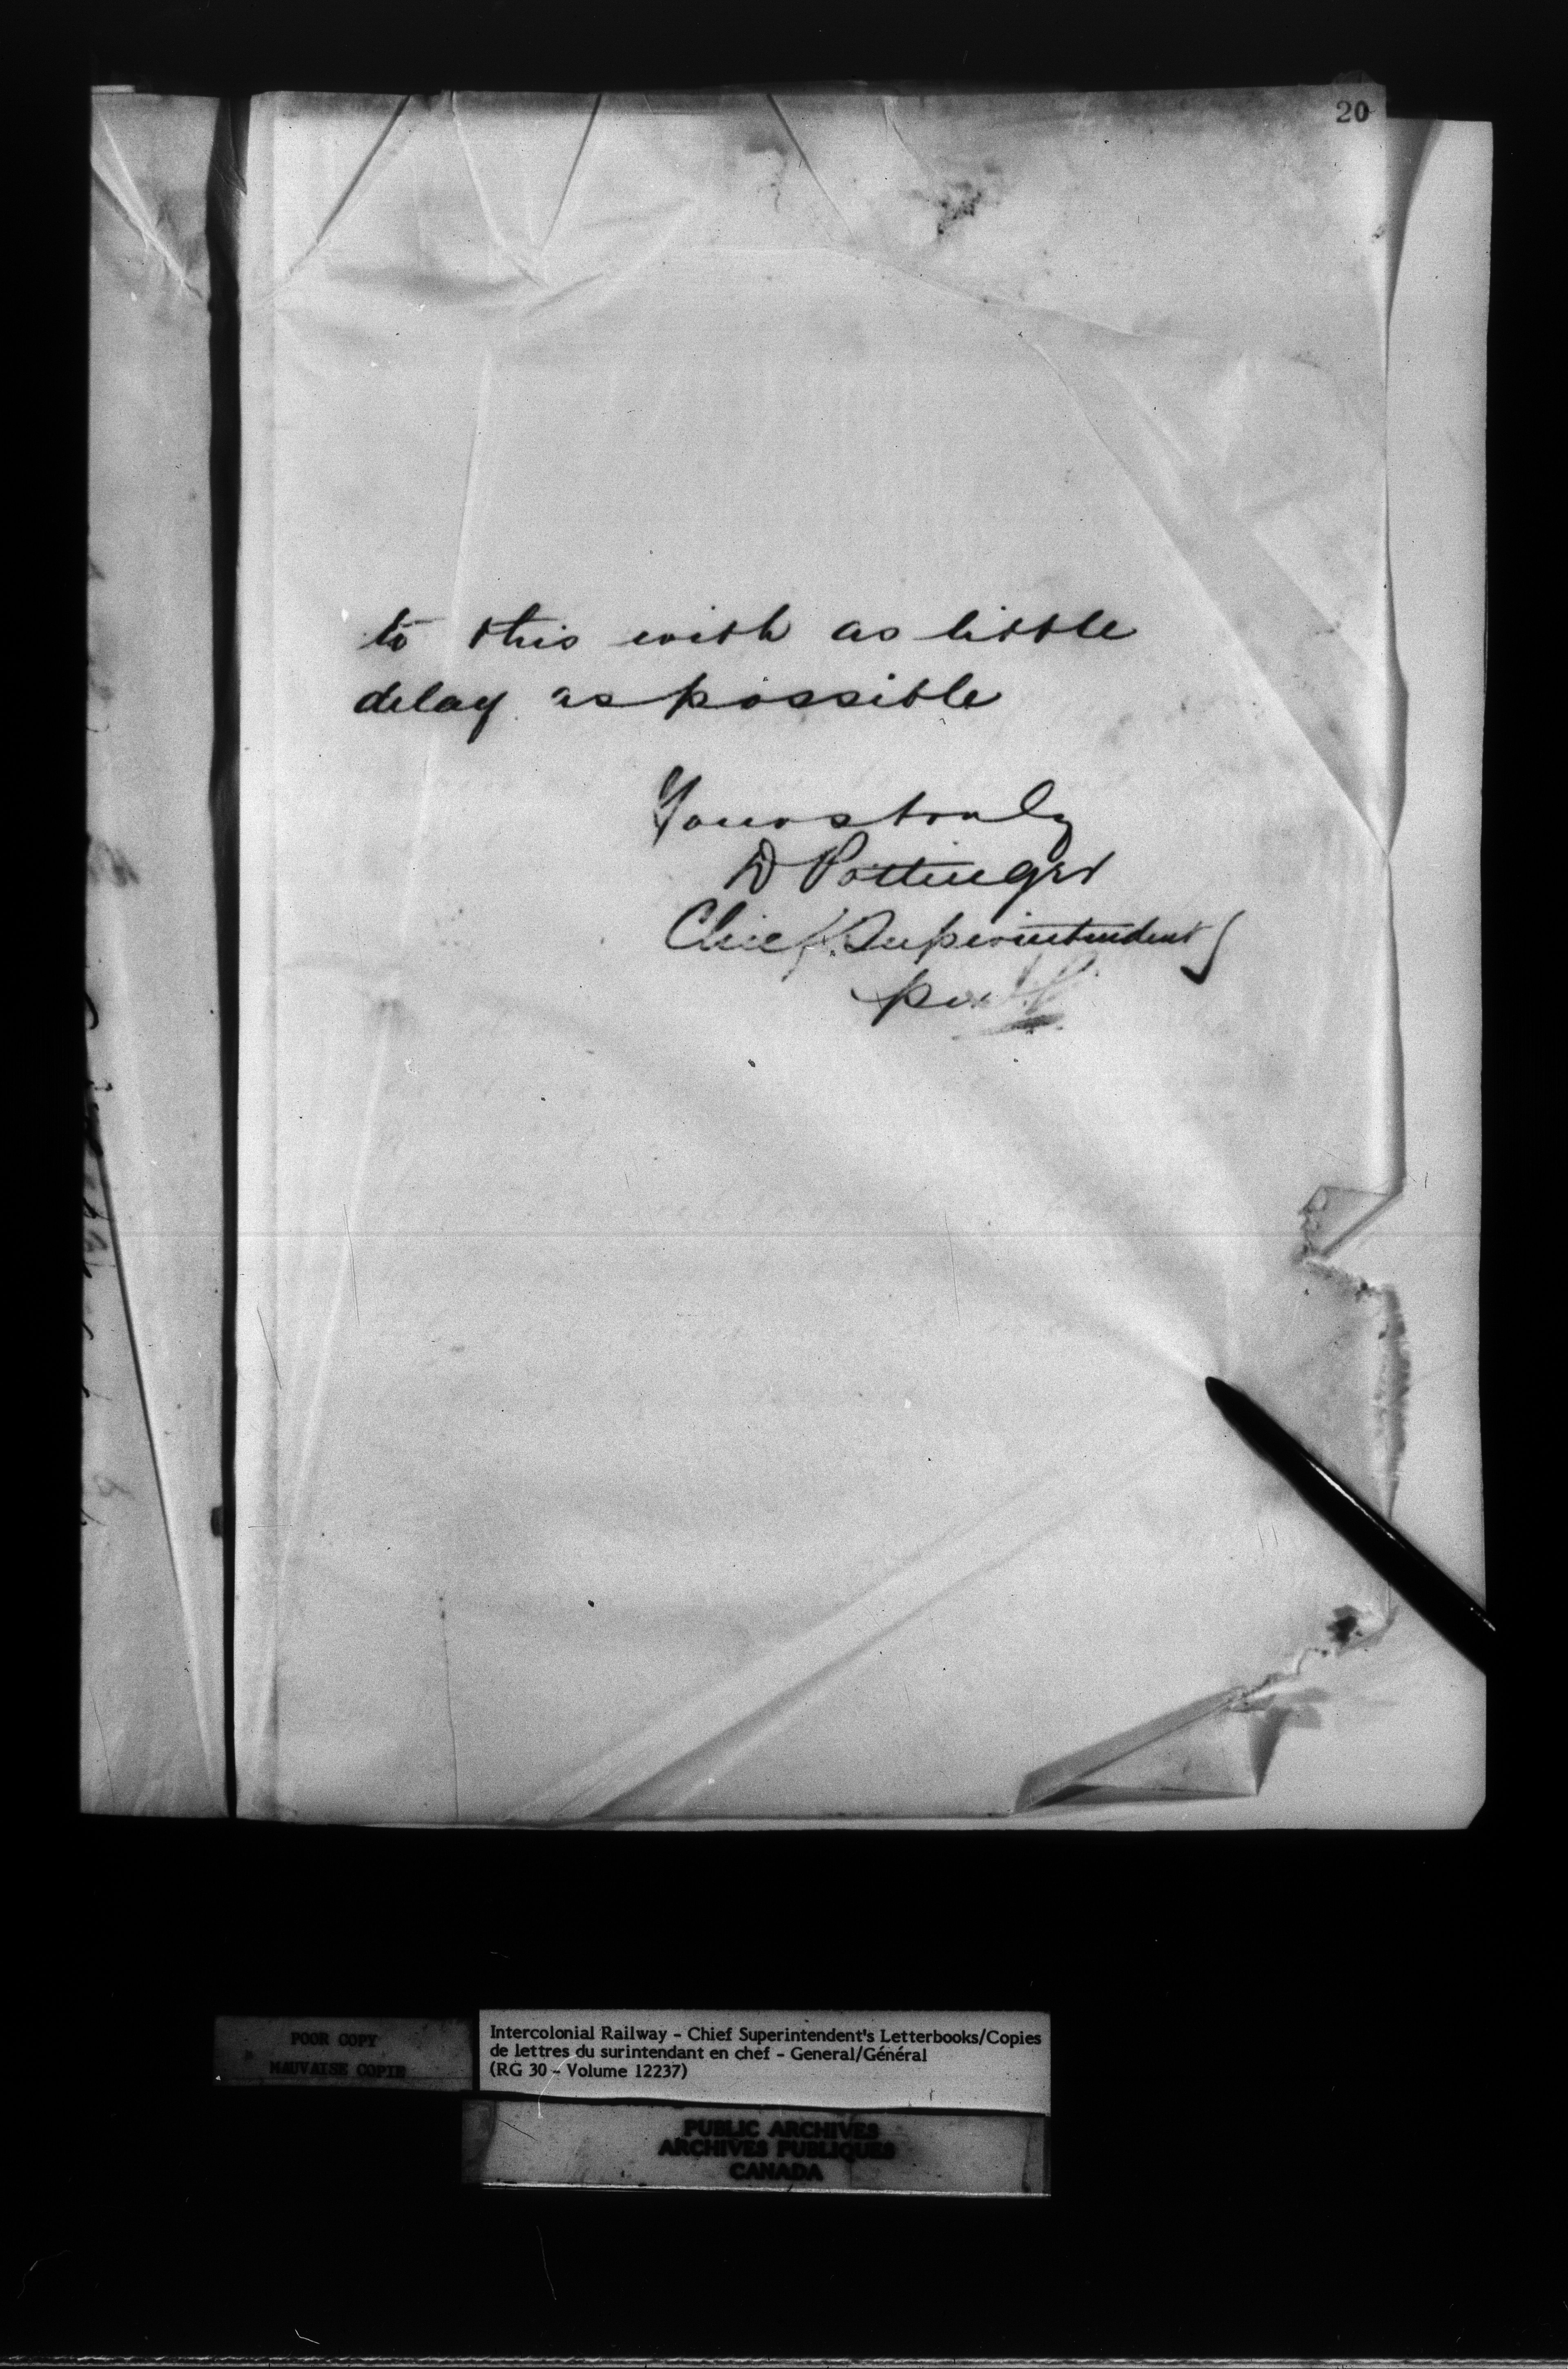 20
to this with as little
delay as possible
Yours truly
D Pottinger
Chief Superintendent
per
POOR COPY
MAUVAISE COPIE
Intercolonial Railway - Chief Superintendent's Letterbooks/Copies
de lettres du surintendant en chef - General/Général
(RG 30 - Volume 12237)
PUBLIC ARCHIVES
ARCHIVES PUBLIQUES
CANADA